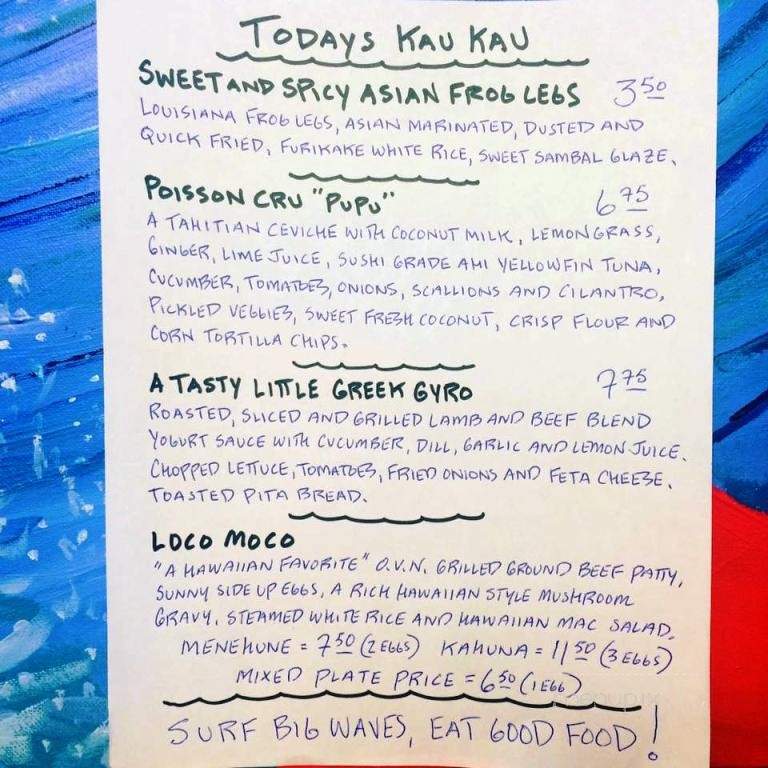 TODAYS KAU KAU
SWEET AND SPICY ASIAN FROG LEGS 3 50
LOUISIANA FROG LEGS, ASIAN MARINATED, DUSTED AND
QUICK FRIED, FURIKAKE WHITE RICE, SWEET SAMBAL GLAZE.
POISSON CRU "PUPU" 6 75
A TAHITIAN CEVICHE WITH COCONUT MILK, LEMONGRASS,
GINGER, LIME JUICE, SUSHI GRADE AHI YELLOWFIN TUNA,
CUCUMBER, TOMATOES, ONIONS, SCALLIONS AND CILANTRO,
PICKLED VEGGIES, SWEET FRESH COCONUT, CRISP FLOUR AND
CORN TORTILLA CHIPS.
A TASTY LITTLE GREEK GYRO 7 75
ROASTED, SLICED AND GRILLED LAMB AND BEEF BLEND
YOGURT SAUCE WITH CUCUMBER, DILL, GARLIC AND LEMON JUICE.
CHOPPED LETTUCE, TOMATOES, FRIED ONIONS AND FETA CHEESE.
TOASTED PITA BREAD.
LOCO MOCO
"A HAWAIIAN FAVORITE" O.V.N. GRILLED GROUND BEEF PATTY,
SUNNY SIDE UP EGGS, A RICH HAWAIIAN STYLE MUSHROOM
GRAVY, STEAMED WHITE RICE AND HAWAIIAN MAC SALAD.
MENEHUNE = 7 50 (2 EGGS) KAHUNA = 11 50 (3 EGGS)
MIXED PLATE PRICE = 6 50 (1 EGG)
SURF BIG WAVES, EAT GOOD FOOD!